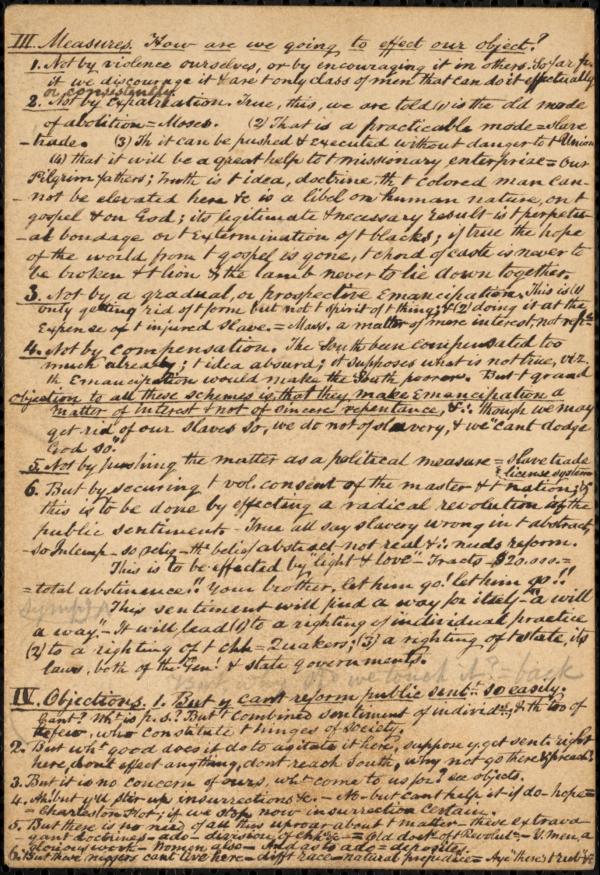 III. Measures. How are we going to effect our object?
1. Not by violence ourselves, or by encouraging it in others. So far fr.
it we discourage it & are t only class of men that can do it effectually
or consistently.
2. Not by Expatriation. True, this, we are told (1) is the old mode
of abolition = Moses. (2) That is a practicable mode = slave
-trade. (3) Th it can be pushed & executed without danger to t Union
(4) that it will be a great help to t missionary enterprise = Our
Pilgrim fathers; Truth is t idea, doctrine, th t colored man can-
-not be elevated here &c is a libel on human nature, on t
gospel & on God; its legitimate & necessary result is t perpetu-
-al bondage or t Extermination of t blacks; if true the hope
of the world from t gospel is gone, t chord of caste is never to
be broken & t lion & the lamb never to lie down together.
3. Not by a gradual, or prospective Emancipation. This is (1)
only getting rid of t form but not t spirit of t thing; & (2) doing it at the
Expense of t injured slave. = Mass. a matter of mere interest, not
4. Not by compensation. The South been compensated too
much already; t idea absurd; it supposes what is not true, viz.
th Emancipation would make the South poorer. But t grand
objection to all these schemes is, that they make Emancipation a
matter of interest & not of sincere repentance, & ∴ though we may
get rid of our slaves so, we do not of slavery, & we "cant dodge
God so."
5. Not by pushing the matter as a political measure = slave trade
& license system
6. But by securing t vol. consent of the master & t nation; &
this is to be done by effecting a radical revolution in the
public sentiment. - True all say slavery wrong in t abstract,
- so Intemp - so relig - th belief abstract - not real & ∴ needs reform.
This is to be effected by "light & love" - Tracts - $20.000. =
= total abstinence!! Your brother, let him go! let him go!!
This sentiment will find a way for itself - "a will
a way." - It will lead (1) to a righting of individual practice
(2) to a righting of t chh = Quakers; (3) a righting of t state, its
laws, both of the Gen! & state governments.
IV. Objections. 1. But y cant reform public sent! so easily;
Cant? Wh! is p. s.? But t combined sentiment of individ!s, & th too of
the few, who constitute t hinges of society.
2. But wh! good does it do to agitate it here, suppose y get sent! right
here, wont effect anything, dont reach South, why not go there & preach?
3. But it is no concern of ours, wh! come to us for? see objects.
4. Ah! but y'll stir up insurrections &c. - No - but cant help it if do - hope =
= Charleston Plot; if we stop now insurrection certain.
5. But there is no need of all this uproar about t matter - these extrava-
-gant doctrines - ado - = Old dock of t Revolut. - Y. men, a
glorious work - Women also - And as to ado =
6. But these niggers cant live here - diff! race - natural prejudice = Aye "there's t rub" &c